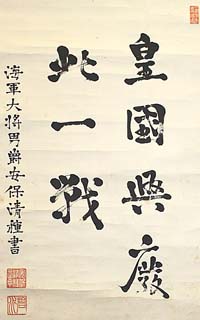 皇國興廢
此一戰
海軍大將男爵安保清種書